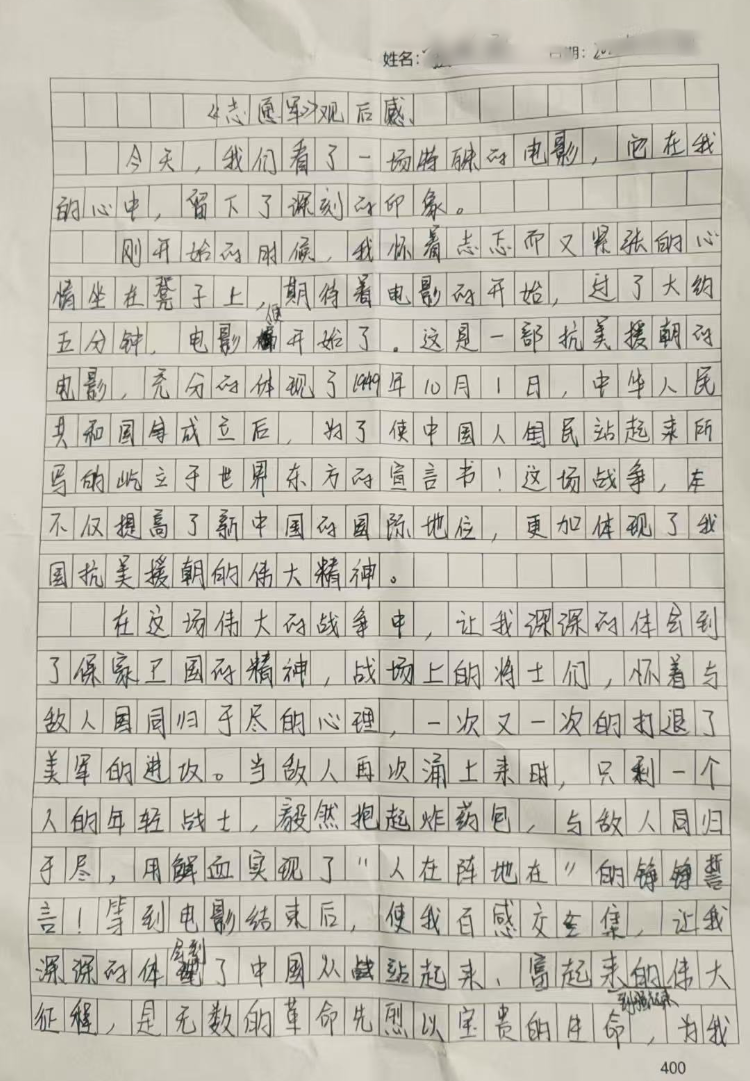 姓名：
日期：
《志愿军》观后感
今天，我们看了一场特殊的电影，它在我
的心中，留下了深刻的印象。
刚开始的时候，我怀着忐忑而又紧张的心
情坐在凳子上，期待着电影的开始，过了大约
五分钟，电影便开始了。这是一部抗美援朝的
电影，充分的体现了1949年10月1日，中华人民
共和国成立后，为了使中国人民站起来所
写的屹立于世界东方的宣言书！这场战争，
不仅提高了新中国的国际地位，更加体现了我
国抗美援朝的伟大精神。
在这场伟大的战争中，让我深深的体会到
了保家卫国的精神，战场上的将士们，怀着与
敌人同归于尽的心理，一次又一次的打退了
美军的进攻。当敌人再次涌上来时，只剩一个
人的年轻战士，毅然抱起炸药包，与敌人同归
于尽，用鲜血实现了"人在阵地在"的铮铮誓
言！等到电影结束后，使我百感交集，让我
深深的体会到了中国从站起来、富起来到强起来的伟大
征程，是无数的革命先烈以宝贵的生命，为我
400